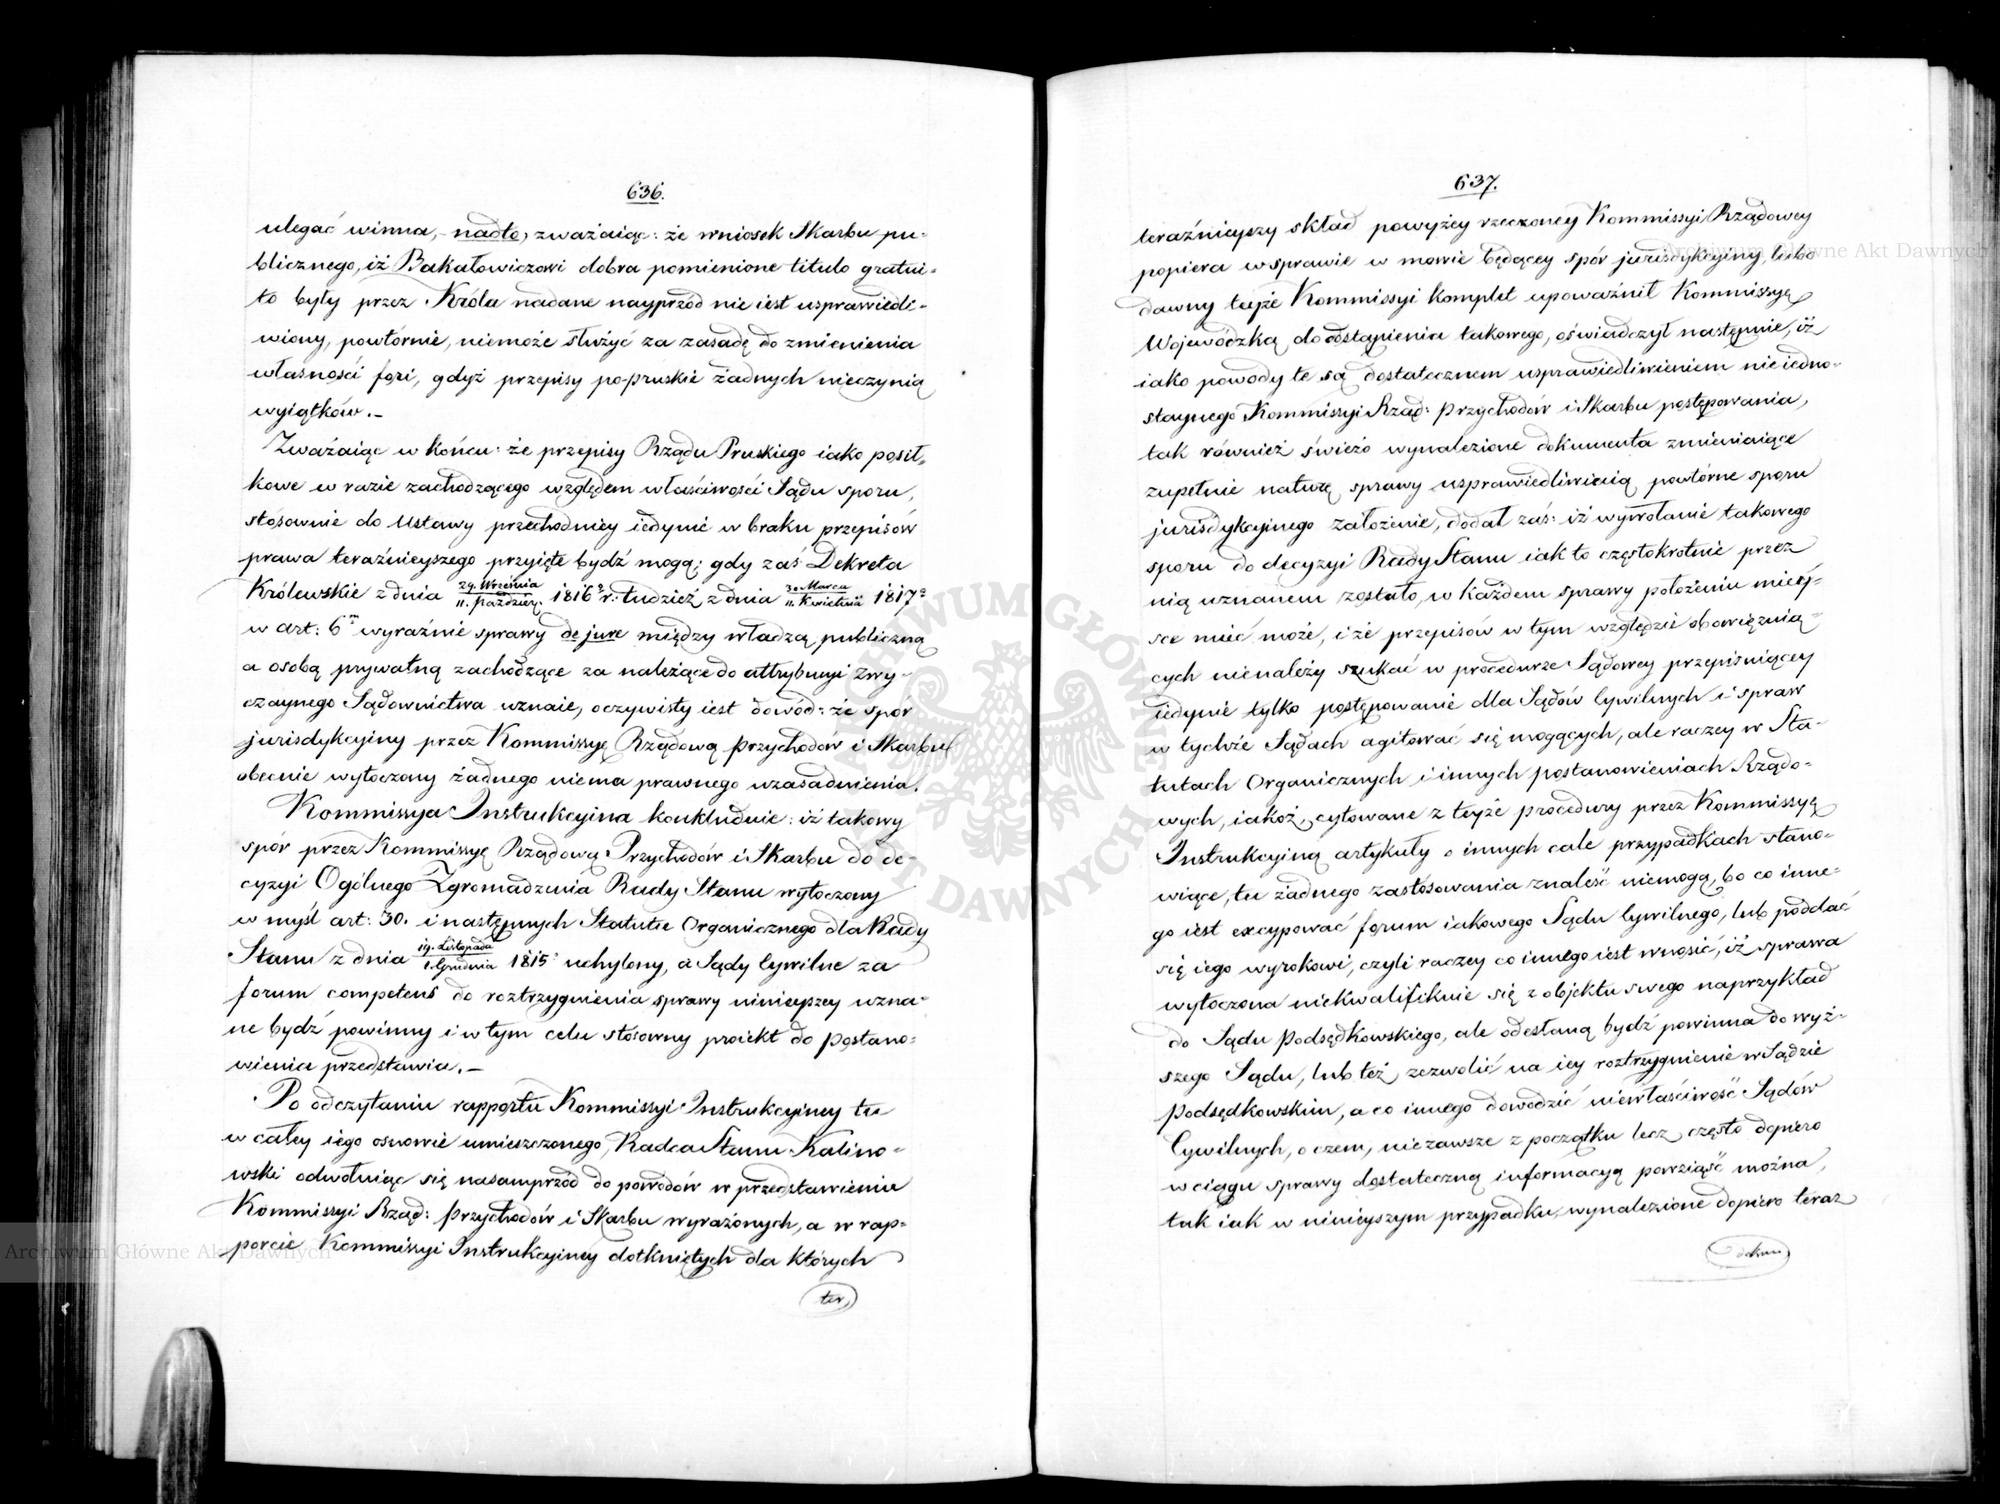 636.
ulegać winna, nadto, zważaiąc: że wniosek Skarbu pu-
blicznego, iż Bakałowiczowi dobra pomienione titulo gratui-
to były przez Króla nadane nayprzód nie iest usprawiedli-
wiony, powtórnie, niemoże służyć za zasadę do zmienienia
własności fori, gdyż przepisy po-pruskie żadnych nieczynią
wyiątków.-
Zważaiąc w końcu: że przepisy Rządu Pruskiego iako posił-
kowe w razie zachodzącego względem właściwości Sądu sporu,
stosownie do Ustawy przechodniey iedynie w braku przepisów
prawa teraźnieyszego przyięte bydź mogą; gdy zaś Dekreta
Królewskie z dnia 29. Września / 11. Paździer. 1816 r. tudzież z dnia 30 Marca / 11. Kwietnia 1817
w art: 6 wyraźnie sprawy de jure między władzą publiczną
a osobą prywatną zachodzące za należące do attrybucyi zwy-
czaynego Sądownictwa uznaie, oczywisty iest dowód: że spór
jurisdykcyiny przez Kommissyę Rządową Przychodów i Skarbu
obecnie wytoczony żadnego niema prawnego uzasadnienia.
Kommissya Instrukcyina konkluduie: iż takowy
spór przez Kommissyę Rządową Przychodów i Skarbu do de-
cyzyi Ogólnego Zgromadzenia Rady Stanu wytoczony
w myśl art: 30. i następnych Statutu Organicznego dla Rady
Stanu z dnia 19. Listopada / 1. Grudnia 1815 uchylony, a Sądy Cywilne za
forum competens do roztrzygnienia sprawy ninieyszey uzna-
ne bydź powinny i w tym celu stósowny proiekt do postano-
wienia przedstawia.-
Po odczytaniu rapportu Kommissyi Instrukcyiney tu
w całey iego osnowie umieszczonego, Radca Stanu Kalino-
wski odwołuiąc się nasamprzód do powodów w przedstawieniu
Kommissyi Rząd: Przychodów i Skarbu wyrażonych, a w rap-
porcie Kommissyi Instrukcyiney dotkniętych dla których
ter,
637.
teraźnieyszy skład powyżey rzeczoney Kommissyi Rządowey
popiera w sprawie w mowie będącey spór jurisdykcyiny, lubo
dawny teyże Kommissyi komplet upoważnił Kommissyę
Wojewódzką do odstąpienia takowego, oświadczył następnie, iż
iako powody te są dostatecznem usprawiedliwieniem nieiedno-
staynego Kommissyi Rząd: Przychodów i Skarbu postępowania,
tak również świeżo wynalezione dokumenta zmieniaiące
zupełnie naturę sprawy usprawiedliwiaią powtórne sporu
jurisdykcyinego założenie, dodał zaś: iż wywołanie takowego
sporu do decyzyi Rady Stanu iak to częstokrotnie przez
nią uznanem zostało, w każdem sprawy położeniu miey-
sce mieć może, i że przepisów w tym względzie obowięzuią-
cych nienależy szukać w procedurze Sądowey przepisuiącey
iedynie tylko postępowanie dla Sądów Cywilnych i spraw
w tychże Sądach agitować się mogących, ale raczey w Sta-
tutach Organicznych i innych postanowieniach Rządo-
wych, iakoż, cytowane z teyże procedury przez Kommissyę
Instrukcyiną artykuły o innych cale przypadkach stano-
wiące, tu żadnego zastósowania znaleść niemogą, bo co inne-
go iest excypować forum iakowego Sądu Cywilnego, lub poddać
się iego wyrokowi, czyli raczey co innego iest wnosić, iż sprawa
wytoczona niekwalifikuie się z objektu swego naprzykład
do Sądu Podsędkowskiego, ale odesłaną bydź powinna do wyż-
szego Sądu, lub też zezwolić na iey roztrzygnienie w Sądzie
Podsędkowskim, a co innego dowodzić niewłaściwość Sądów
Cywilnych, o czem, niezawsze z początku lecz często dopiero
w ciągu sprawy dostateczną informacyą powziąść można,
tak iak w ninieyszym przypadku, wynalezione dopiero teraz
dokum
Archiwum Główne Akt Dawnych
Archiwum Główne Akt Dawnych
ARCHIWUM GŁÓWNE AKT DAWNYCH